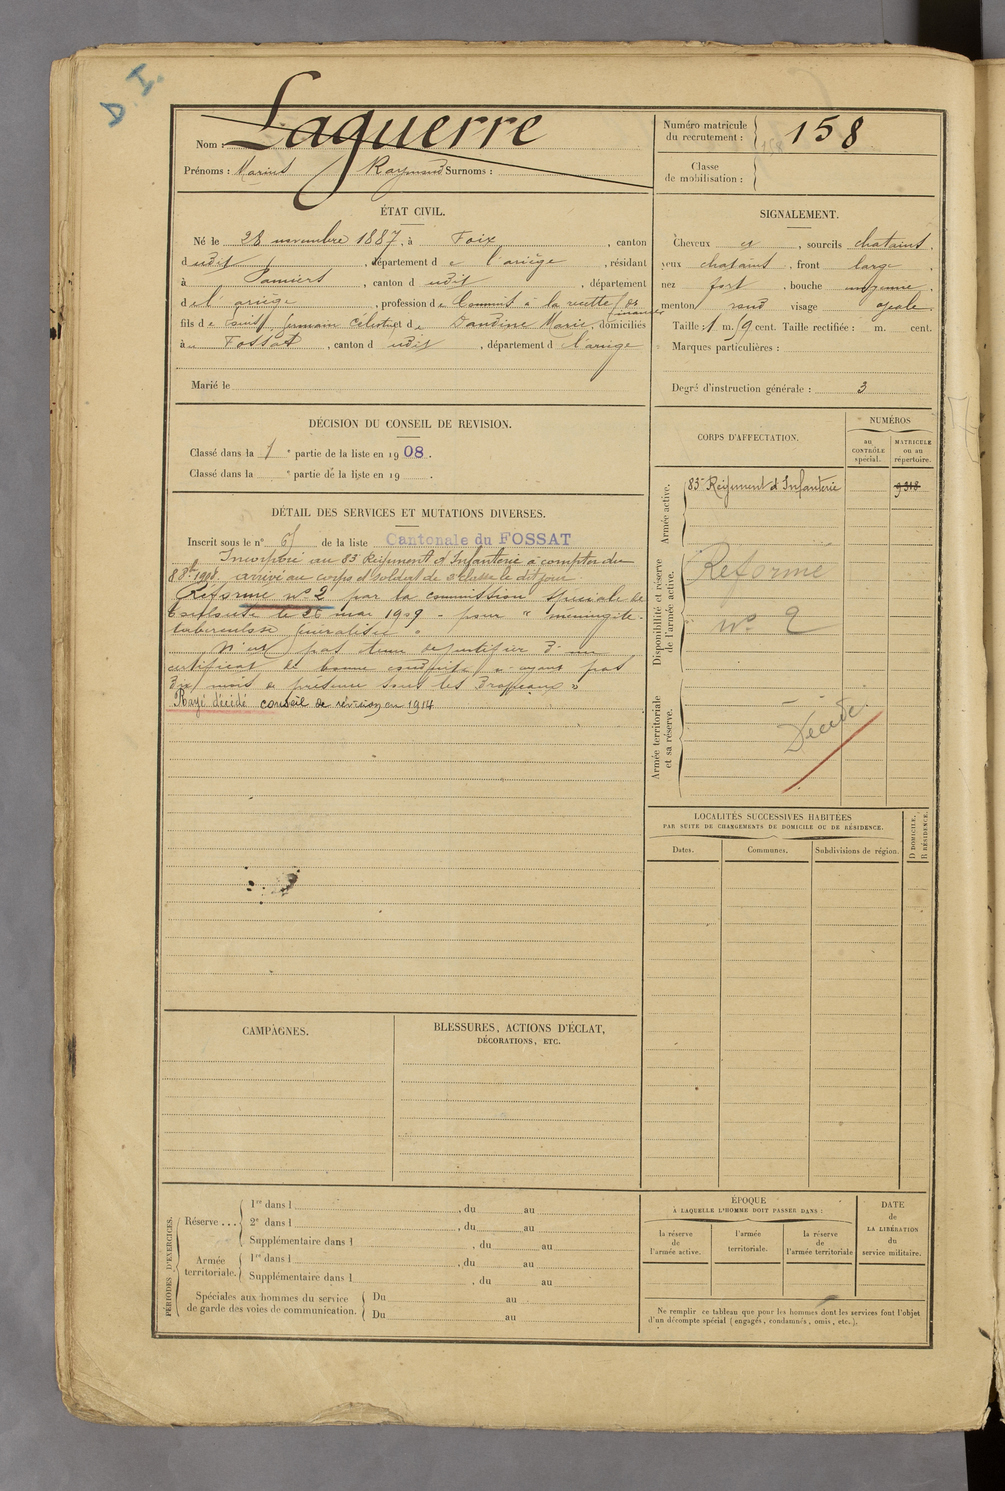 D I.
Nom : Laguerre
Prénoms : Marius Raymond Surnoms :
Numéro matricule
du recrutement : 158
Classe
de mobilisation :
ÉTAT CIVIL.
Né le 28 novembre 1887, à Foix, canton
dudit, département de l'ariège, résidant
à Pamiers, canton dudit, département
de l'ariège, profession de Commis à la recette des
finances
fils de Germain Célestin et de Dandine Marie, domiciliés
au Fossat, canton dudit, département d l'ariège
Marié le
SIGNALEMENT.
Cheveux et, sourcils chatains.
yeux chatains, front large,
nez fort, bouche moyenne,
menton rond visage ovale.
Taille : 1 m. cent. Taille rectifiée : m. cent.
Marques particulières :
Degré d'instruction générale : 3
DÉCISION DU CONSEIL DE REVISION.
Classé dans la 1e partie de la liste en 1908.
Classé dans la e partie de la liste en 19 .
DÉTAIL DES SERVICES ET MUTATIONS DIVERSES.
Inscrit sous le n° de la liste Cantonale du FOSSAT
Incorporé au 83e Régiment d'Infanterie à compter du
8 8bre 1908. arrivé au corps et soldat de 2e classe le dit jour
Réformé n° 2 par la commission spéciale de
Toulouse le 26 mai 1909 - pour " méningite
tuberculose généralisée "
N'est pas tenu de justifier d'un
certificat de bonne conduite n'ayant pas
mois de présence sous les Drapeaux »
Rayé décédé conseil de révision 1914
CORPS D'AFFECTATION.
NUMÉROS
au
CONTRÔLE
spécial.
MATRICULE
ou au
répertoire.
Armée active.
83e Régiment d'Infanterie
9318
Disponibilité et réserve
de l'armée active.
Réformé
n° 2
Armée territoriale
et sa réserve.
Décédé
LOCALITÉS SUCCESSIVES HABITÉES
PAR SUITE DE CHANGEMENTS DE DOMICILE OU DE RÉSIDENCE.
Dates.
Communes.
Subdivisions de région.
D DOMICILE.
R RÉSIDENCE.
CAMPAGNES.
BLESSURES, ACTIONS D'ÉCLAT,
DÉCORATIONS, ETC.
PÉRIODES D'EXERCICES.
Réserve ...
1re dans l , du au
2e dans l , du au
Supplémentaire dans l , du au
Armée
territoriale.
1re dans l , du au
Supplémentaire dans l , du au
Spéciales aux hommes du service
de garde des voies de communication.
Du au
Du au
ÉPOQUE
À LAQUELLE L'HOMME DOIT PASSER DANS :
la réserve
de
l'armée active.
l'armée
territoriale.
la réserve
de
l'armée territoriale
DATE
de
LA LIBÉRATION
du
service militaire.
Ne remplir ce tableau que pour les hommes dont les services font l'objet
d'un décompte spécial (engagés, condamnés, omis, etc.).